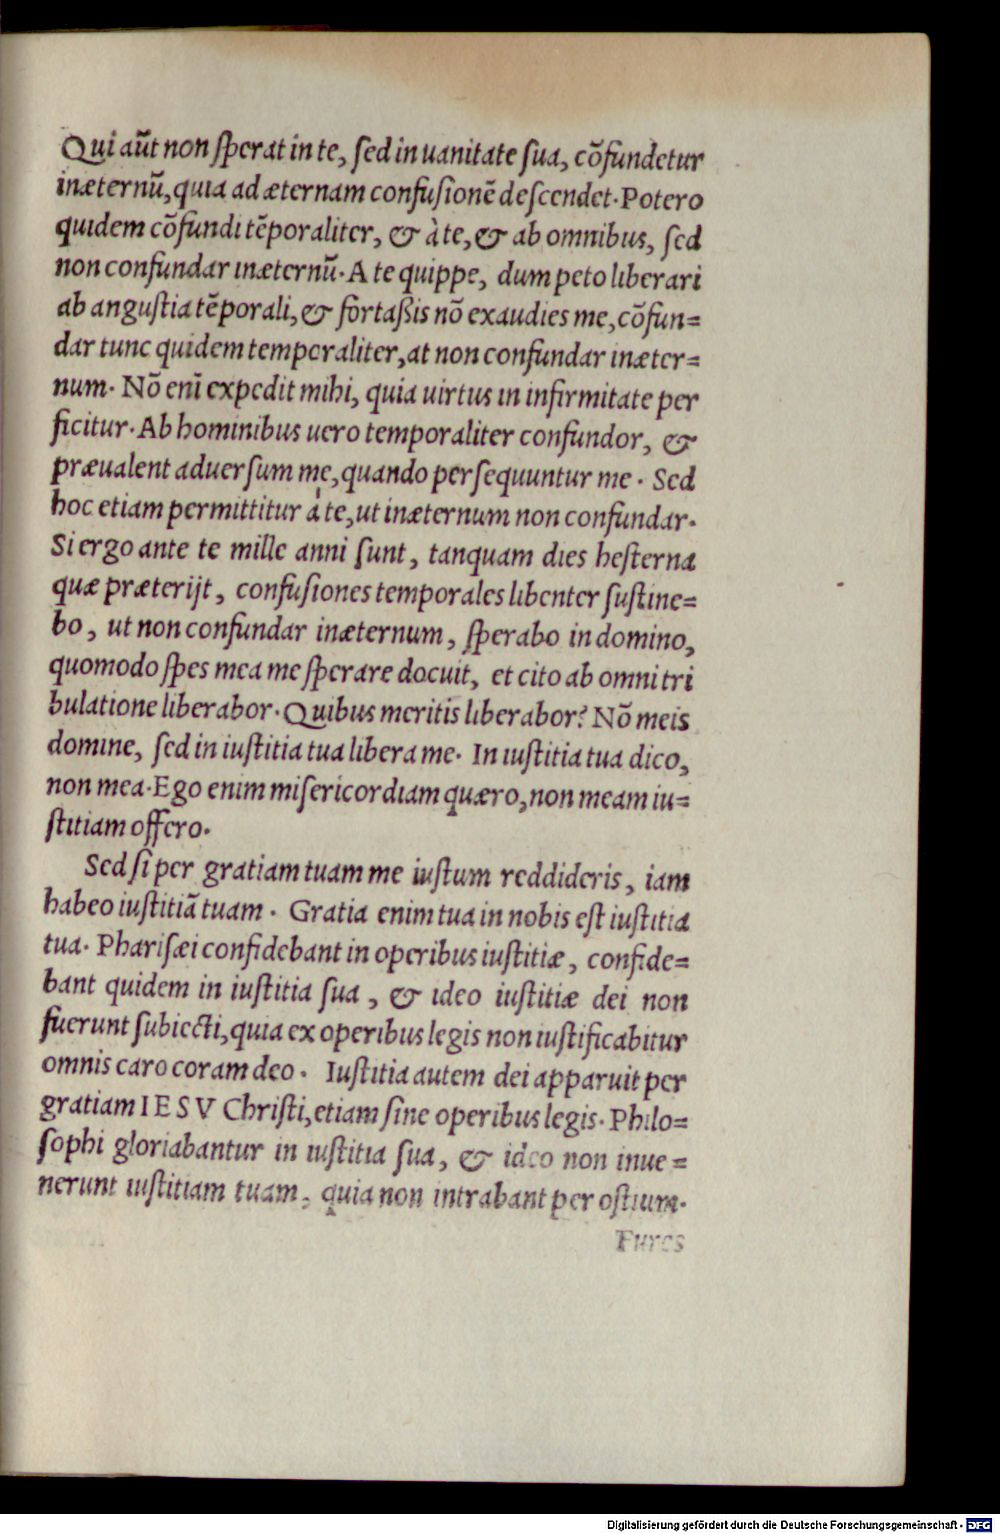 Qui aũt non sperat in te, sed in uanitate sua, cõfundetur
inæternũ, quia ad æternam confusionẽ descendet. Potero
quidem cõfundi tẽporaliter, & à te, & ab omnibus, sed
non confundar inæternũ. A te quippe, dum peto liberari
ab angustia tẽporali, & fortaßis nõ exaudies me, cõfun=
dar tunc quidem temporaliter, at non confundar inæter=
num. Nõ enĩ expedit mihi, quia uirtus in infirmitate per
ficitur. Ab hominibus uero temporaliter confundor, &
præualent aduersum me, quando persequuntur me. Sed
hoc etiam permittitur à te, ut inæternum non confundar.
Si ergo ante te mille anni sunt, tanquam dies hesterna
quæ præterijt, confusiones temporales libenter sustine=
bo, ut non confundar inæternum, sperabo in domino,
quomodo spes mea me sperare docuit, et cito ab omni tri
bulatione liberabor. Quibus meritis liberabor? Nõ meis
domine, sed in iustitia tua libera me. In iustitia tua dico,
non mea. Ego enim misericordiam quæro, non meam iu=
stitiam offero.
Sed si per gratiam tuam me iustum reddideris, iam
habeo iustitiã tuam. Gratia enim tua in nobis est iustitia
tua. Pharisæi confidebant in operibus iustitiæ, confide=
bant quidem in iustitia sua, & ideo iustitiæ dei non
fuerunt subiecti, quia ex operibus legis non iustificabitur
omnis caro coram deo. Iustitia autem dei apparuit per
gratiam IESV Christi, etiam sine operibus legis. Philo=
sophi gloriabantur in iustitia sua, & ideo non inue=
nerunt iustitiam tuam, quia non intrabant per ostium.
Fures
Digitalisierung gefördert durch die Deutsche Forschungsgemeinschaft - DFG